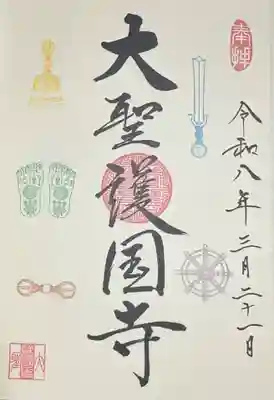 奉拝
令和八年三月二十一日
大聖護国寺